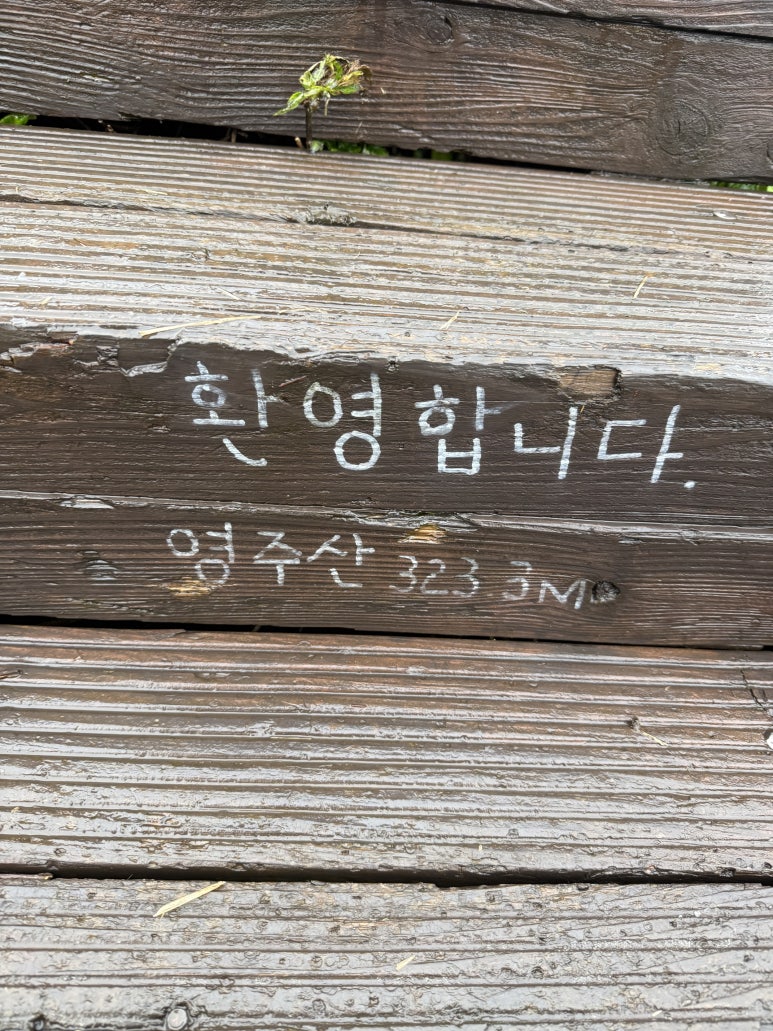 환영합니다.
영주산 323 3M